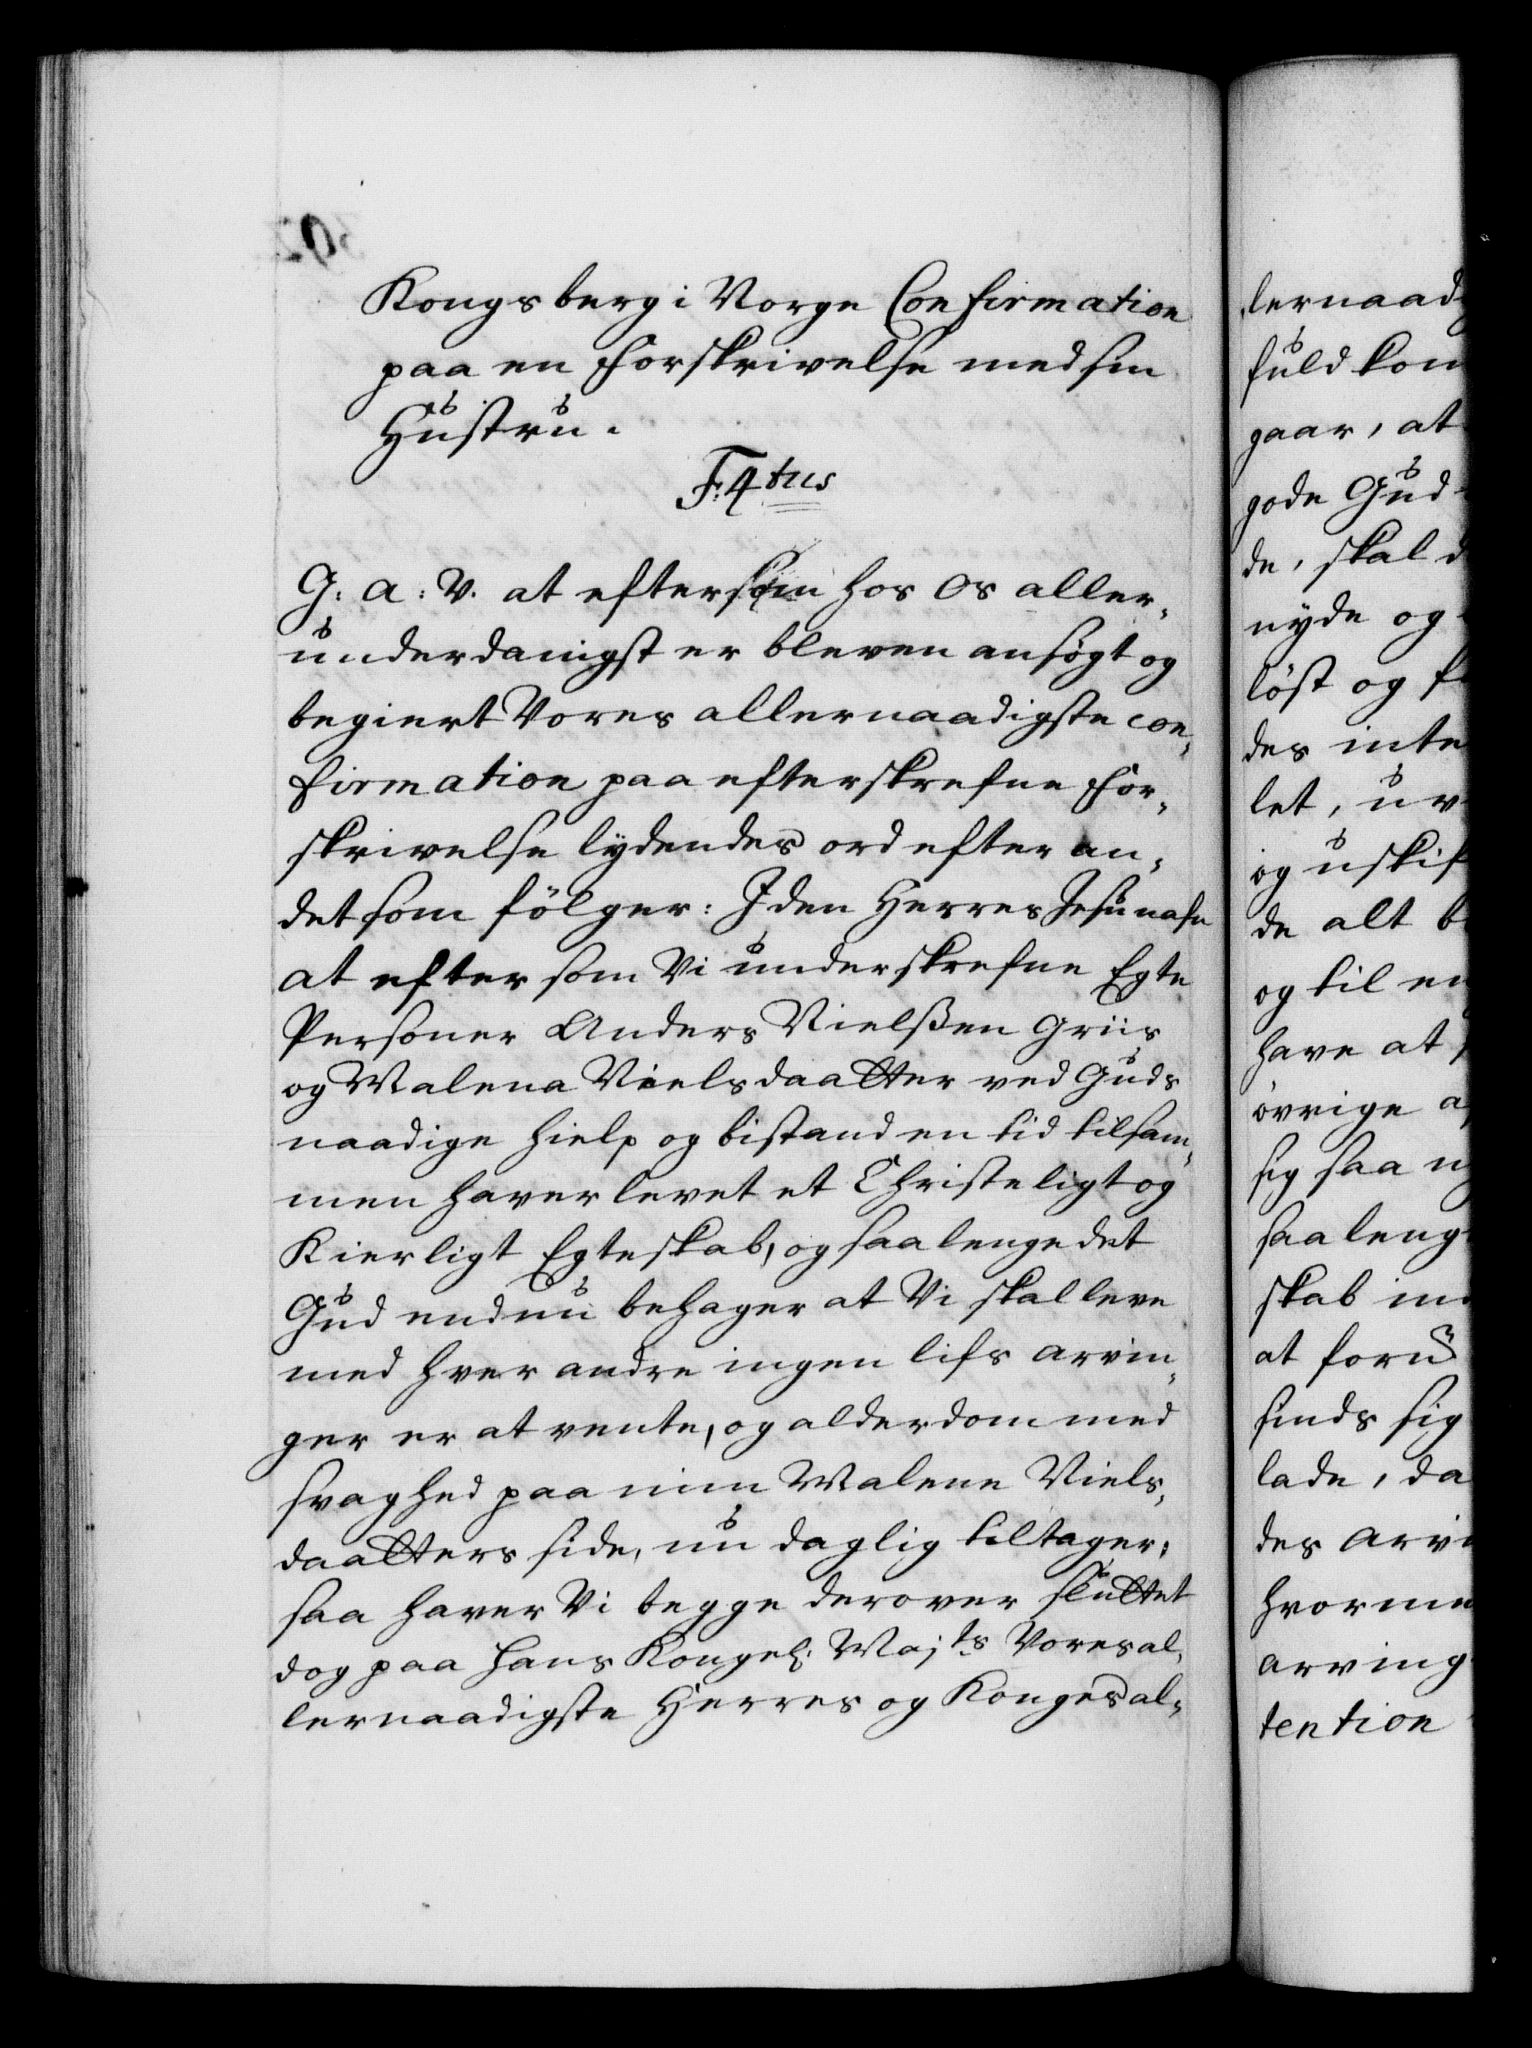 Kongsberg i Norge Confirmation
paa en Forskrivelse med sin
Hustru.
F: 4tus
G: A: V. at eftersom hos Os aller-
underdanigst er bleven ansøgt og
begiert Vores allernaadigste con-
firmation paa efterskrefne For-
skrivelse lydendes ord efter an-
det som fölger: I den Herres Jesu nafn
at eftersom Vi underskrefne Egte
Personer Anders Nielsen Griis
og Malena Nielsdaatter ved Guds
naadige hielp og bistand en tid tilsam-
men haver levet et Christeligt og
Kierligt Egteskab, og saalenge det
Gud endnu behager at Vi skal leve
med hver andre ingen lifs arvin-
ger er at vente, og alderdom med
svaghed paa min Malene Niels-
daatters side, nu daglig tiltager;
saa haver Vi begge derover sluttet
dog paa Hans Kongel: Majts Vores al-
lernaadigste Herres og Konges al-
lernaad
fuldkom
gaar, at
gode Gud
de, skal d
nyde og
löst og f
des inte
let, uv
og uskif
de alt b
og til en
have at
övrige a
sig saa n
saaleng
skab in
at foru
finds sig
lade, da
des arvi
hvorme
arving
tention